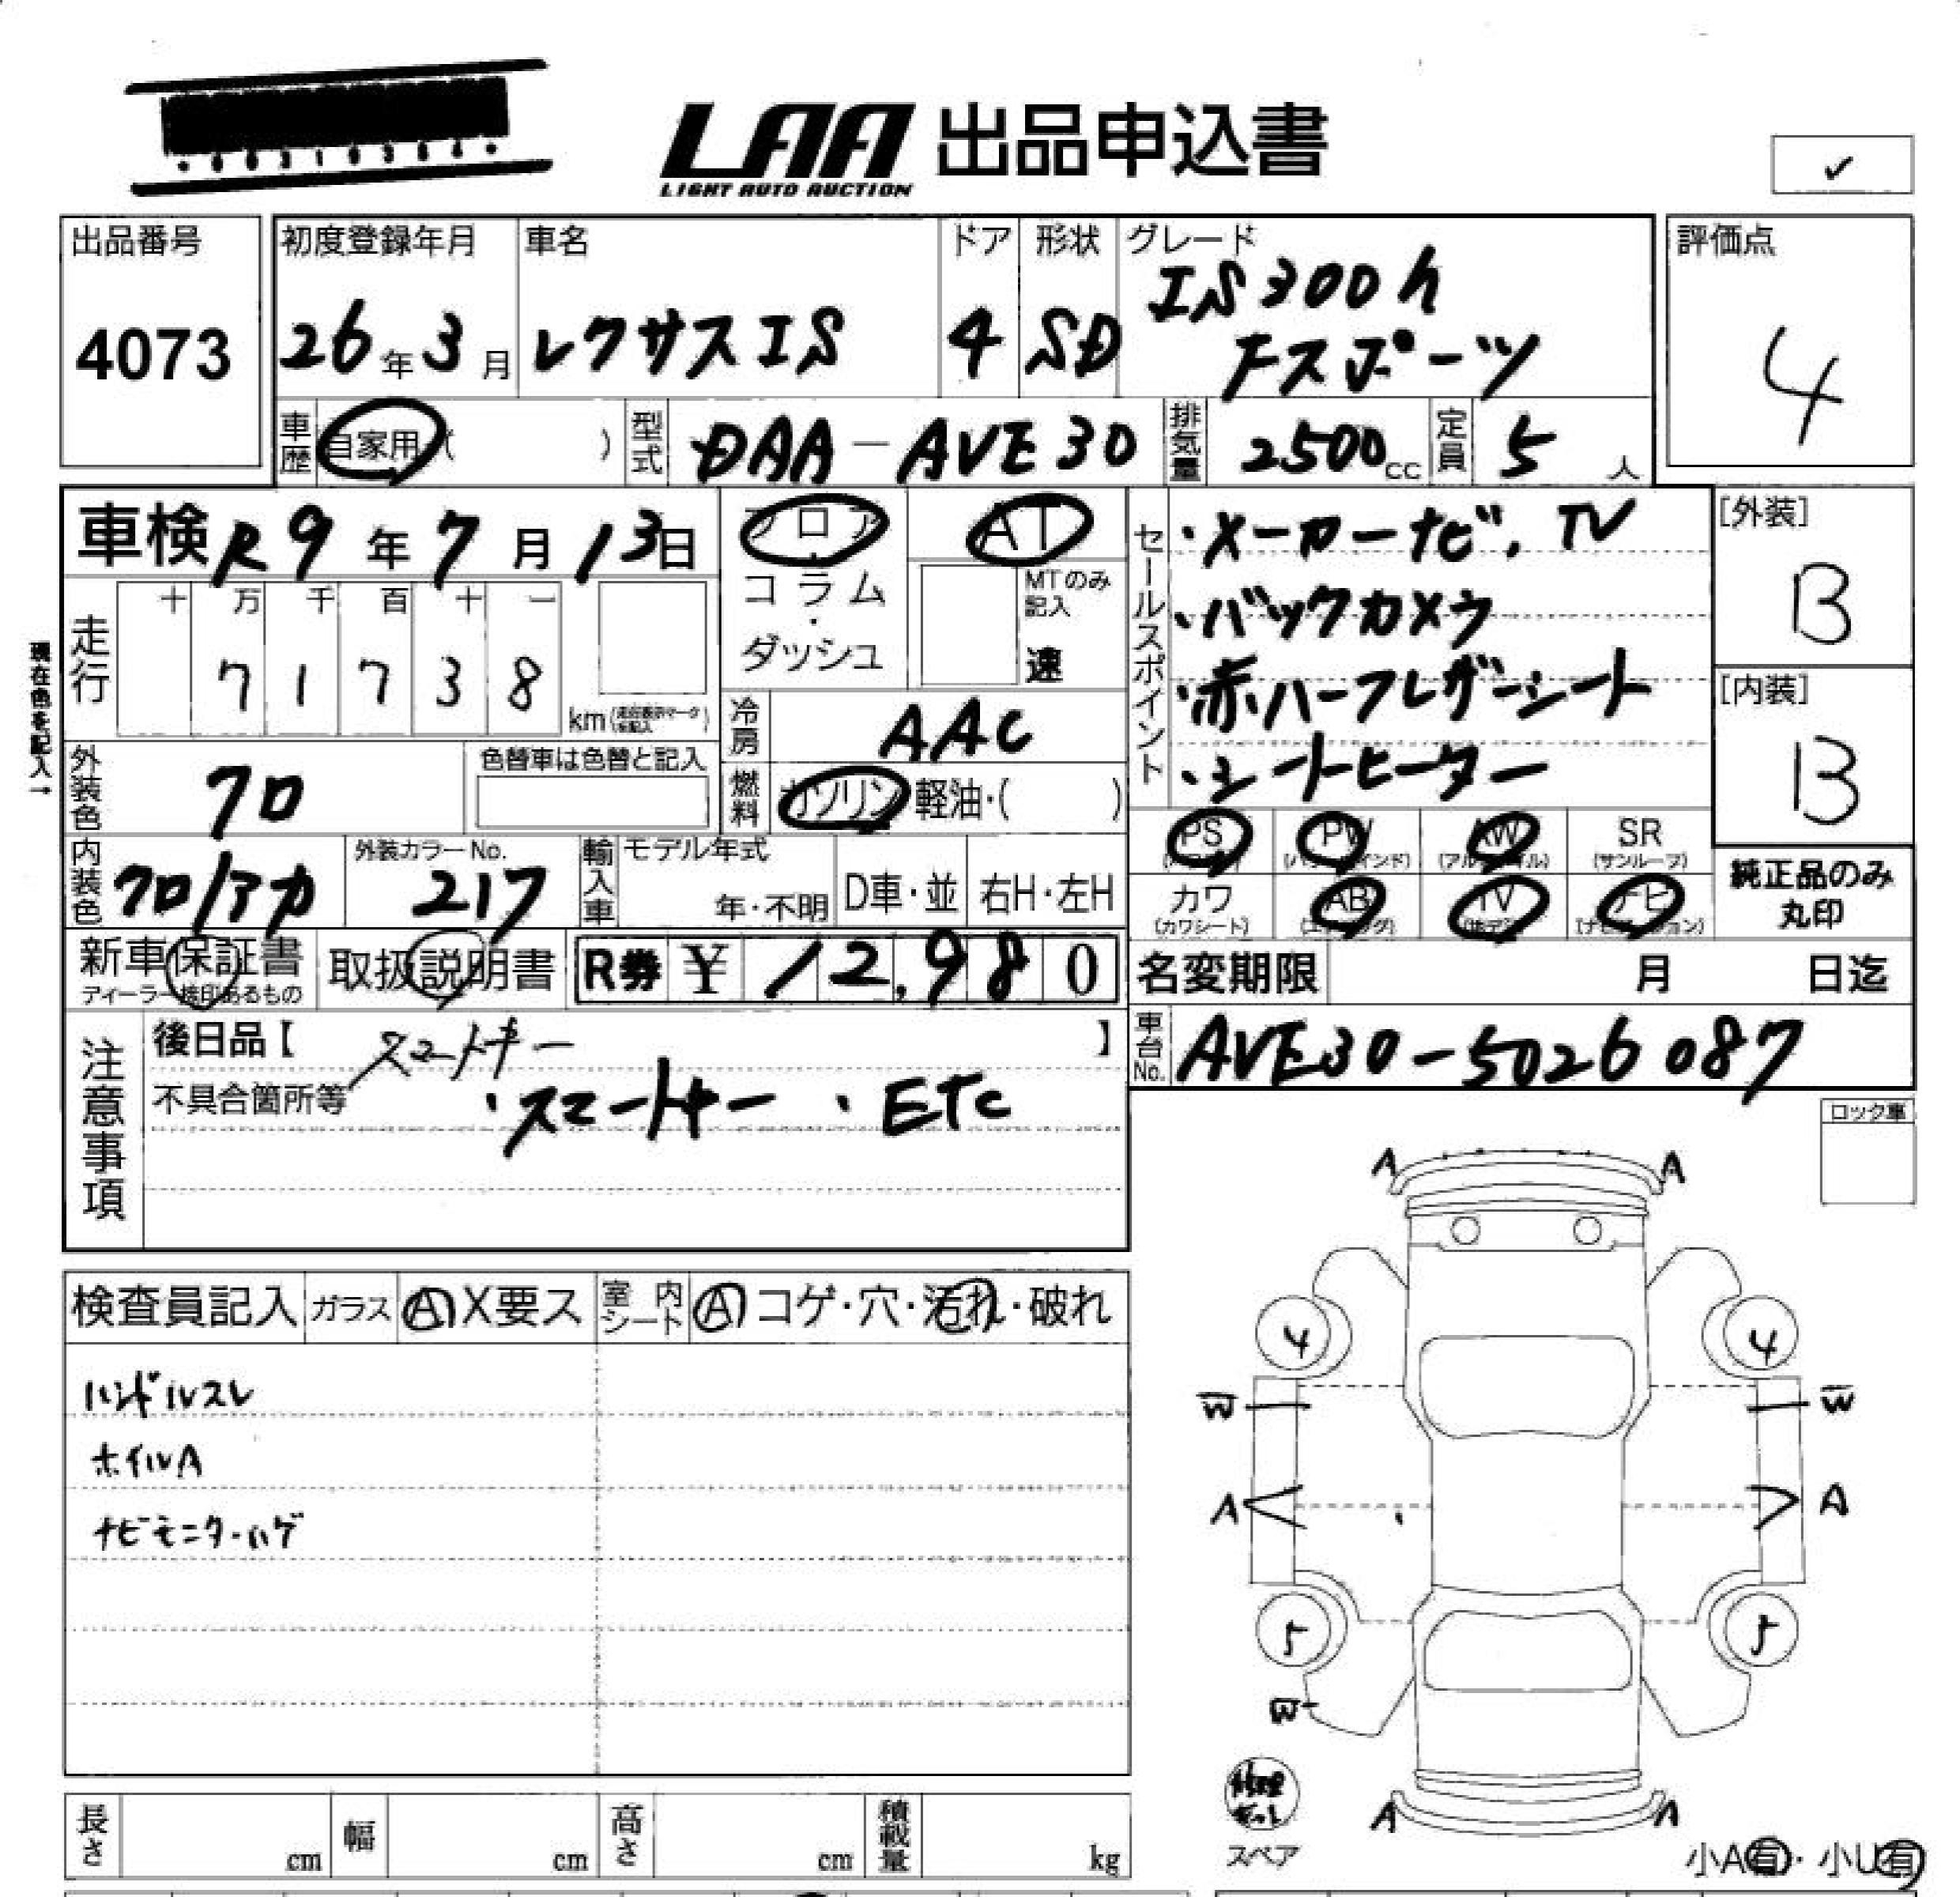 LAA 出品申込書
LIGHT AUTO AUCTION
✓
出品番号
4073
初度登録年月
26年3月
車名
レクサスIS
ドア
4
形状
SD
グレード
IS300h
Fスポーツ
評価点
4
車歴 自家用 ( )
型式 DAA-AVE30
排気量 2500cc
定員 5人
車検 R9年7月13日
フロア・コラム・ダッシュ
AT
MTのみ記入
速
セールスポイント
・メーカーナビ、TV
・バックカメラ
・赤ハーフレザーシート
・シートヒーター
[外装]
B
[内装]
B
現在色を記入→
走行
十 万 千 百 十 一
7 1 7 3 8
km
冷房 AAC
燃料 ガソリン 軽油・( )
外装色 クロ
色替車は色替と記入
内装色 クロ/アカ
外装カラーNo.
217
輸入車
モデル年式
年・不明
D車・並
右H・左H
PS PW AW SR
(サンルーフ)
カワ AB TV ナビ
(カワシート)
純正品のみ
丸印
新車保証書
ディーラー検印あるもの
取扱説明書
R券 ¥ 12,980
名変期限 月 日迄
車台No. AVE30-5026087
注意事項
後日品【 スマートキー 】
不具合箇所等
・スマートキー ・ETC
ロック車
検査員記入 ガラス A X要ス 室内シート A コゲ・穴・汚れ・破れ
ハンドルスレ
ホイルA
ナビモニターハゲ
A A
4 4
W W
A A
5 5
W
A A
スペア
長さ cm 幅 cm 高さ cm 積載量 kg
小A有・小U有